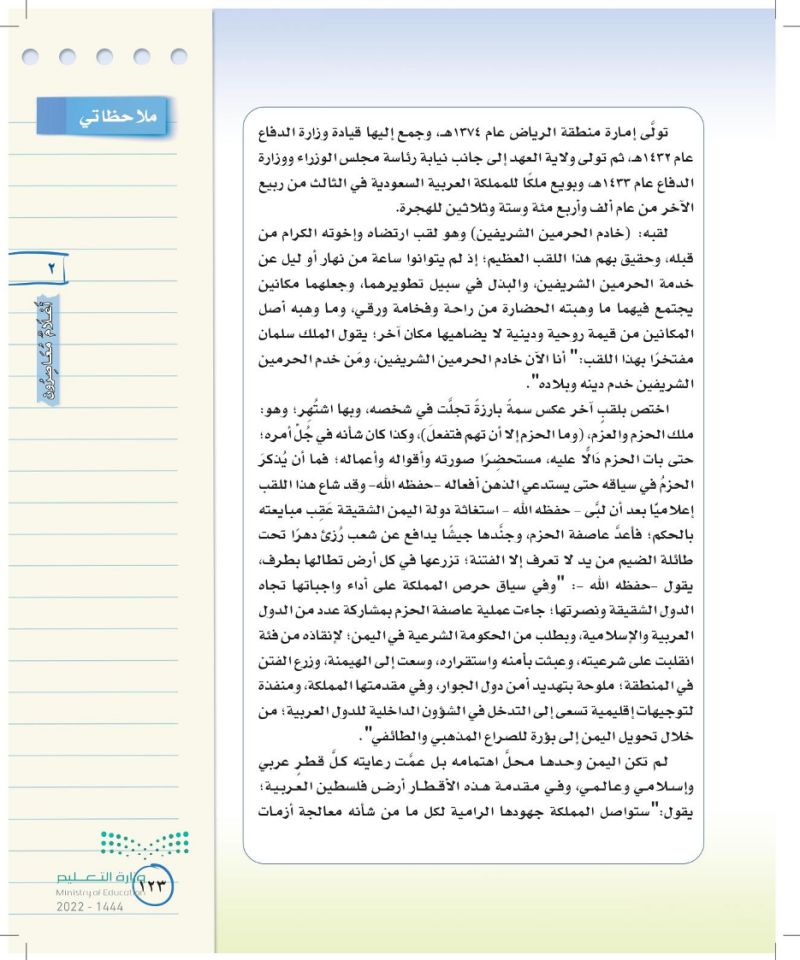 ملاحظاتي
تولَّى إمارة منطقة الرياض عام ١٣٧٤هـ، وجمع إليها قيادة وزارة الدفاع
عام ١٤٣٢هـ، ثم تولى ولاية العهد إلى جانب نيابة رئاسة مجلس الوزراء ووزارة
الدفاع عام ١٤٣٣هـ، وبويع ملكًا للمملكة العربية السعودية في الثالث من ربيع
الآخر من عام ألف وأربع مئة وستة وثلاثين للهجرة.
لقبه: (خادم الحرمين الشريفين) وهو لقب ارتضاه وإخوته الكرام من
قبله، وحقيق بهم هذا اللقب العظيم؛ إذ لم يتوانوا ساعة من نهار أو ليل عن
خدمة الحرمين الشريفين، والبذل في سبيل تطويرهما، وجعلهما مكانين
يجتمع فيهما ما وهبته الحضارة من راحة وفخامة ورقي، وما وهبه أصل
المكانين من قيمة روحية ودينية لا يضاهيها مكان آخر؛ يقول الملك سلمان
مفتخرًا بهذا اللقب:" أنا الآن خادم الحرمين الشريفين، ومَن خدم الحرمين
الشريفين خدم دينه وبلاده".
اختص بلقبٍ آخر عكس سمةً بارزةً تجلَّت في شخصه، وبها اشتُهِر؛ وهو:
ملك الحزم والعزم، (وما الحزم إلا أن تهم فتفعلَ)، وكذا كان شأنه في جُلِّ أمره؛
حتى بات الحزم دَالًّا عليه، مستحضِرًا صورته وأقواله وأعماله؛ فما أن يُذكرَ
الحزمُ في سياقه حتى يستدعي الذهن أفعاله -حفظه الله- وقد شاع هذا اللقب
إعلاميًا بعد أن لبَّى - حفظه الله - استغاثة دولة اليمن الشقيقة عَقِب مبايعته
بالحكم؛ فأعدَّ عاصفة الحزم، وجنَّدها جيشًا يدافع عن شعب رُزئ دهرًا تحت
طائلة الضيم من يد لا تعرف إلا الفتنة؛ تزرعها في كل أرض تطالها بطرف،
يقول -حفظه الله -: "وفي سياق حرص المملكة على أداء واجباتها تجاه
الدول الشقيقة ونصرتها؛ جاءت عملية عاصفة الحزم بمشاركة عدد من الدول
العربية والإسلامية، وبطلب من الحكومة الشرعية في اليمن؛ لإنقاذه من فئة
انقلبت على شرعيته، وعبثت بأمنه واستقراره، وسعت إلى الهيمنة، وزرع الفتن
في المنطقة؛ ملوحة بتهديد أمن دول الجوار، وفي مقدمتها المملكة، ومنفذة
لتوجيهات إقليمية تسعى إلى التدخل في الشؤون الداخلية للدول العربية؛ من
خلال تحويل اليمن إلى بؤرة للصراع المذهبي والطائفي".
لم تكن اليمن وحدها محلَّ اهتمامه بل عمَّت رعايته كلَّ قطرٍ عربي
وإسلامي وعالمي، وفي مقدمة هذه الأقطار أرض فلسطين العربية؛
يقول:"ستواصل المملكة جهودها الرامية لكل ما من شأنه معالجة أزمات
٢
أَعْلَامٌ مُعَاصِرُون
وزارة التعليم
Ministry of Education
2022 - 1444
١٢٣